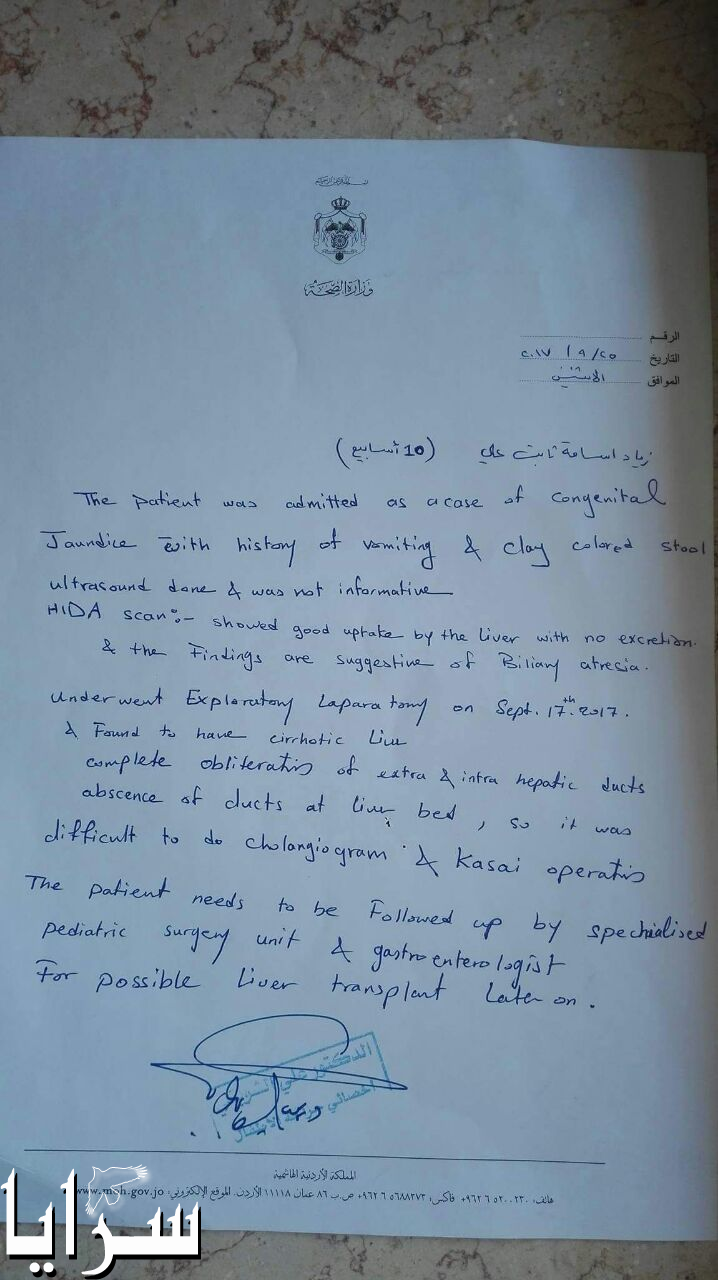 وزارة الصحة
الرقم
التاريخ ٢٥ / ٩ / ٢٠١٧
الموافق الاثنين
زياد اسامة ثابت علي (10 أسابيع)
The patient was admitted as a case of congenital
Jaundice with history of vomiting & clay colored stool
ultrasound done & was not informative
HIDA scan:- showed good uptake by the liver with no excretion.
& the Findings are suggestive of Biliary atresia.
Underwent Exploratory Laparatomy on Sept. 17th. 2017.
& Found to have cirrhotic Liver
complete obliteration of extra & intra hepatic ducts
abscence of ducts at liver bed, so it was
difficult to do cholangiogram & Kasai operation
The patient needs to be Followed up by spechialised
pediatric surgery unit & gastroenterologist
For possible Liver transplant Later on.
الدكتور علي
اخصائي
المملكة الأردنية الهاشمية
هاتف: ٥٢٠٠٢٣٠ ٦ ٩٦٢+ فاكس: ٥٦٨٨٣٧٣ ٦ ٩٦٢+ ص.ب ٨٦ عمان ١١١١٨ الأردن. الموقع الإلكتروني: www.moh.gov.jo
سرايا